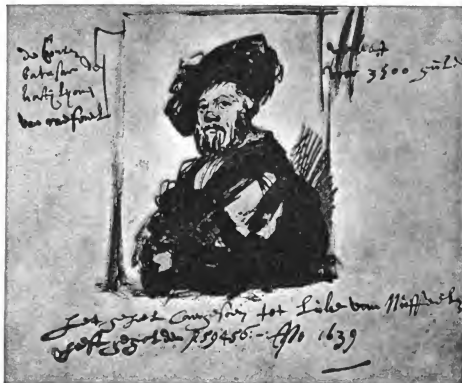 de Conte
batasar de
kastijlyone
van raefael
verkoft
voor 3500 gulden
het geheel Caergesoen tot Luke van Nuffeelen
heeft gegolden f 59456:- Ao 1639